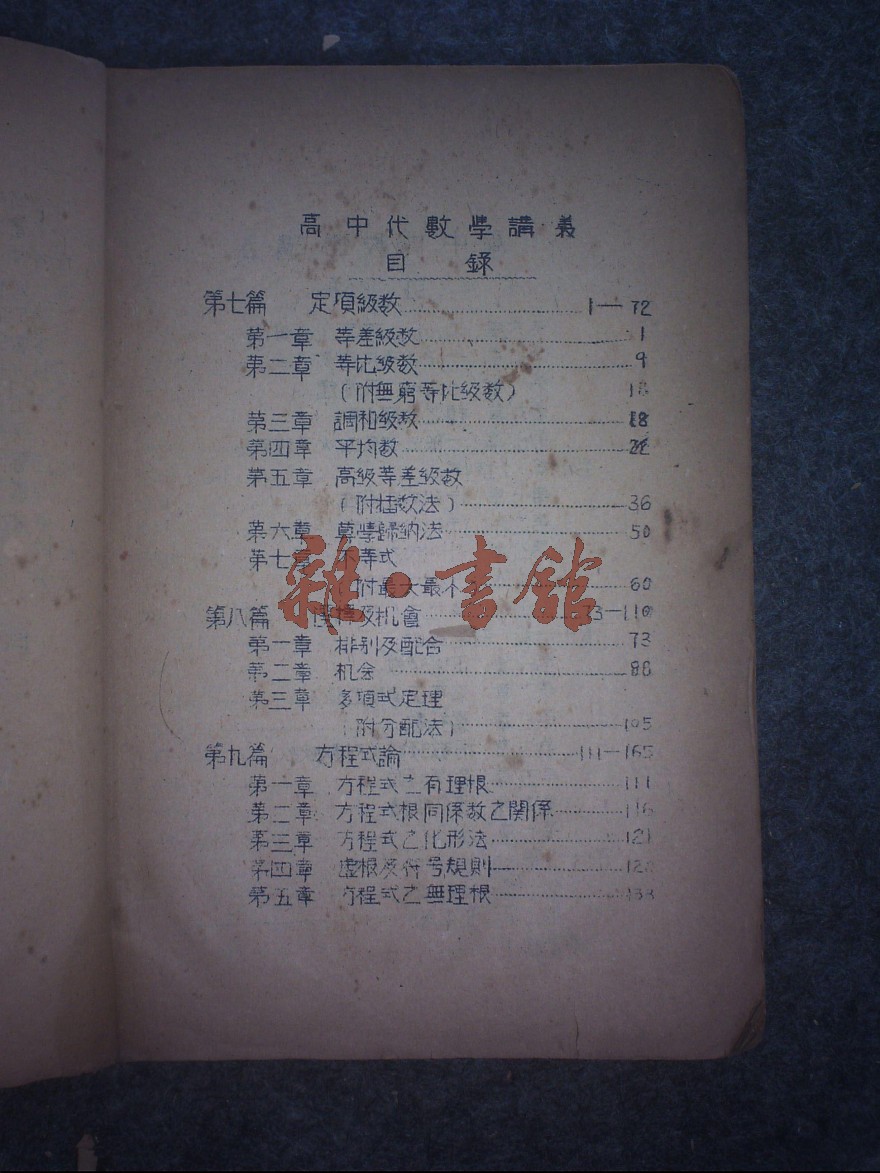 高中代數學講義
目錄
第七篇 定項級数 1—72
第一章 等差級数 1
第二章 等比級数 9
(附無窮等比級数)
第三章 調和級数
第四章 平均数
第五章 高級等差級数
(附插数法) 36
第六章 歸納法 50
第七章 不等式
附最大最小 60
第八篇 及机會 —110
第一章 排列及配合 73
第二章 机会 88
第三章 多項式定理
(附分配法) 105
第九篇 方程式論 111—165
第一章 方程式之有理根 111
第二章 方程式根同係数之関係 116
第三章 方程式之化形法 121
第四章 虚根及符号規則
第五章 方程式之無理根
雜·書館